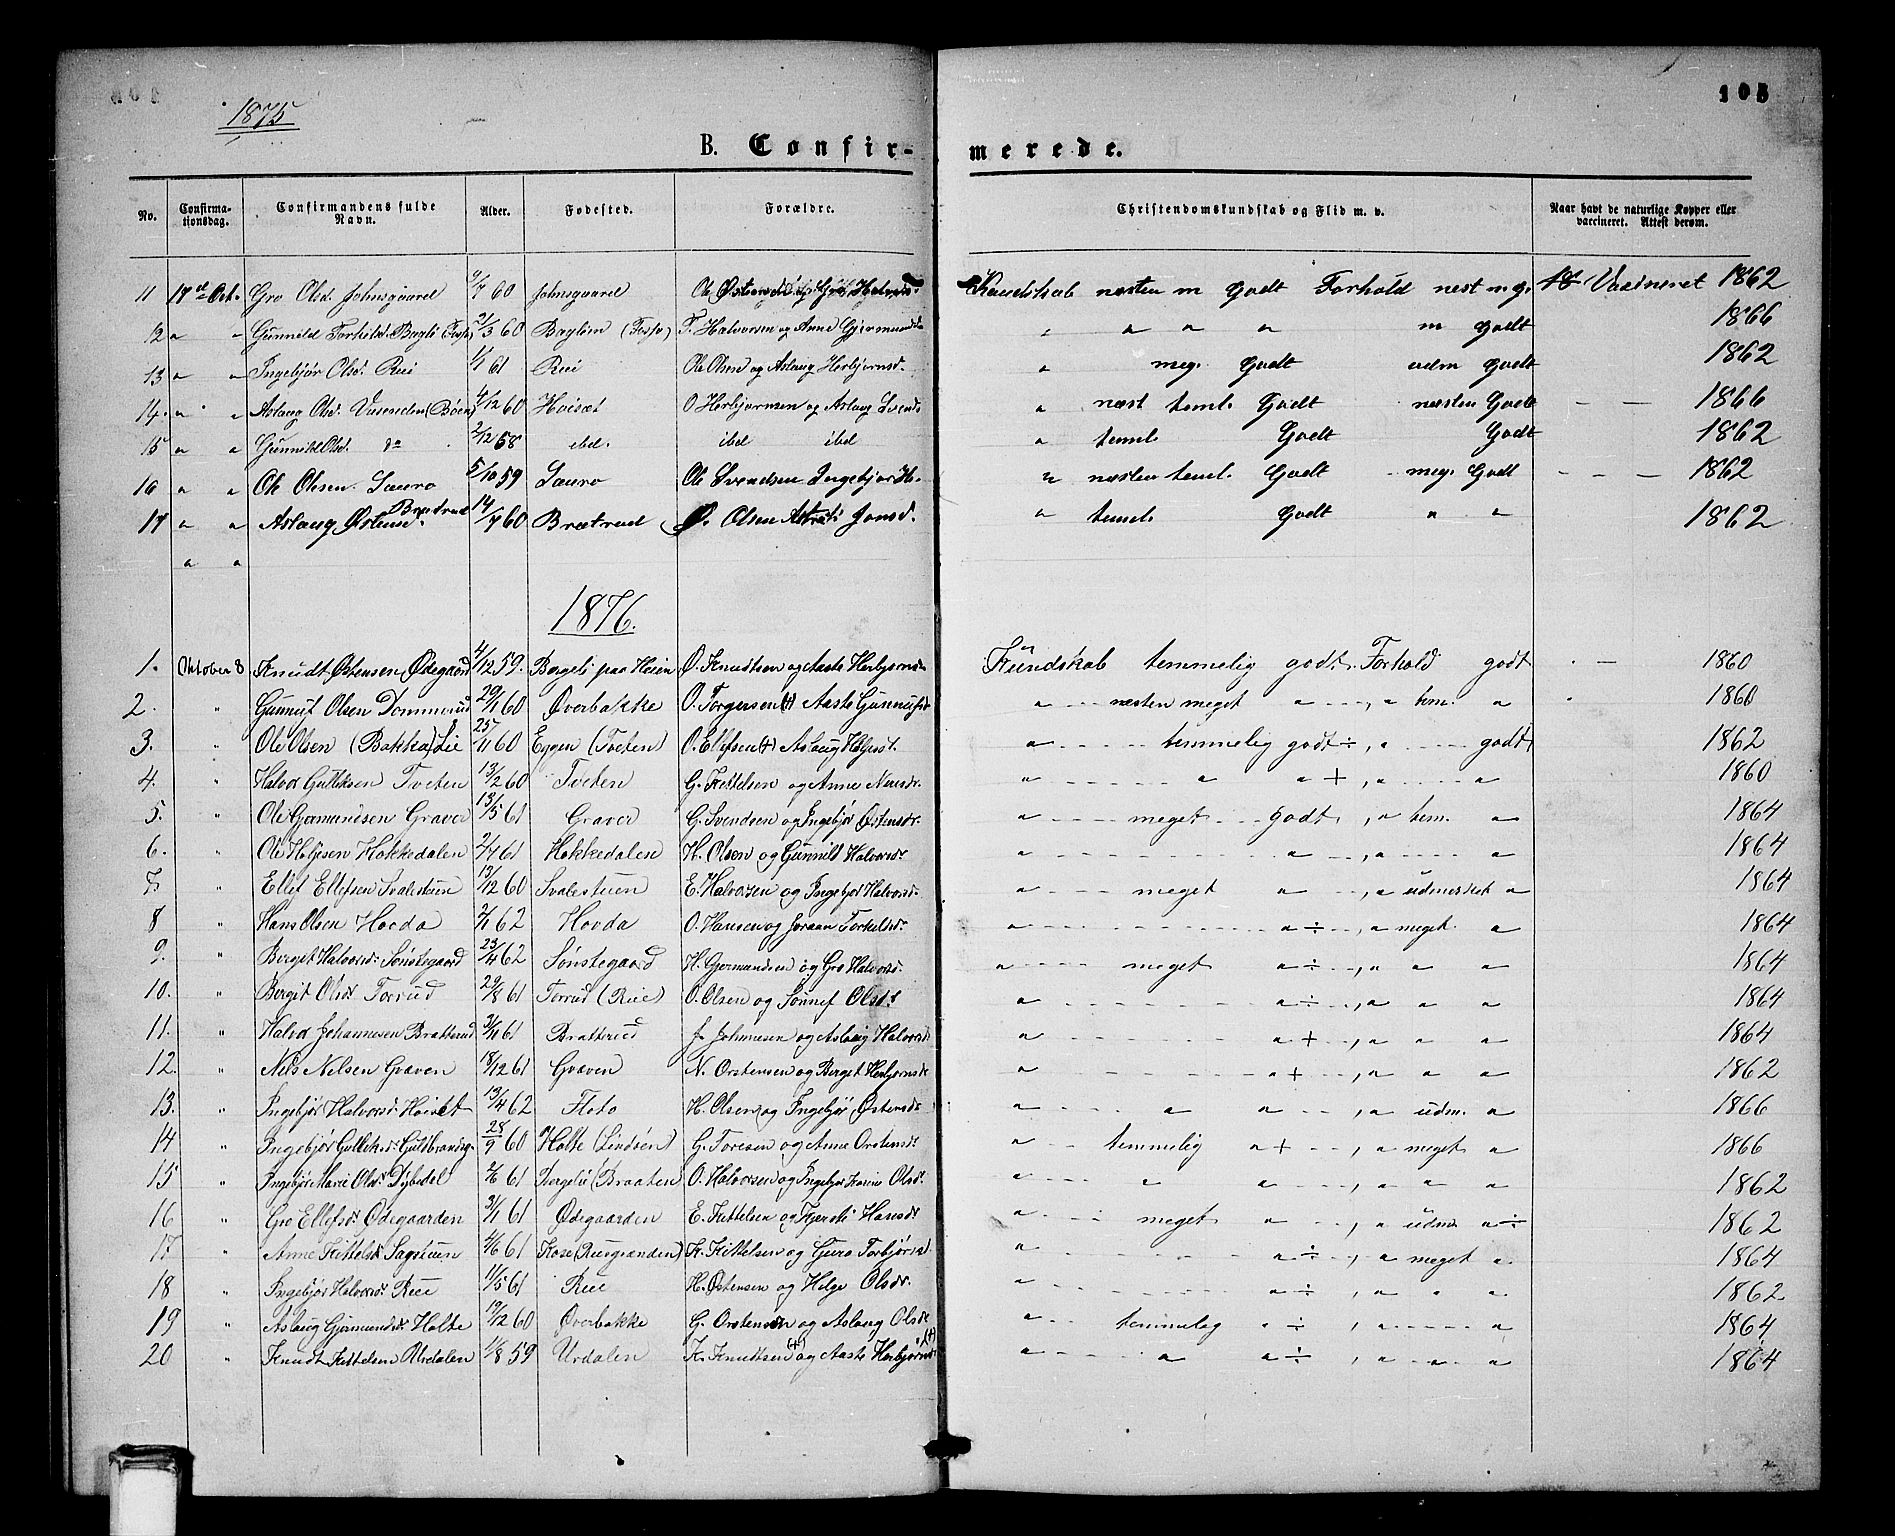 1875
105
B. Confir-
merede.
No. Confirma-tionsdag. Confirmandens fulde Navn. Alder. Fødested. Forældre. Christendomskundskab og Flid m. v. Naar havt de naturlige Kopper eller vaccineret. Attest derom.
11 17de Oct. Gro Olsd. Johnsgaard 9/7 60 Johnsgaard Ole Kundskab næsten m godt Forhold nest meg. Vaxineret 1862
12 " " Gunnild Torkildsd. Bagli 2/3 60 T. Halvorsen og Anne Gjermundsd " " " " m godt 1866
13 " " Ingebjør Olsd. Rui 1/1 61 Rui Ole Olsen og Aslaug Herbjørnsd. " meg. Godt udm Godt 1862
14. " " Aslaug Olsd. (Bøen) 4/12 60 Hoisæt O Herbjørnsen og Aslaug Svends " næst teml. Godt næsten Godt — — 1866
15 " " Gunnild Olsd. do 2/12 58 ibd. ibd ibd " teml. Godt Godt 1862
16 " " Ole Olesen Sauro 5/10 59 Sauro Ole Svendsen Ingebjør H. " næsten teml. Godt meg. Godt - - - 1862
17 " " Aslaug Østensd. Brætrud 14/7 60 Brætrud Ø. Olsen Jonsd. " teml. Godt " " 1862
" "
1876.
1. Oktober 8 Knudt Østensen Ødegaard 4/12 59. Bergeli paa Heien Ø. Knudtsen og Aaste Herbjørnsd Kundskab temmelig godt. Forhold godt 1860
2. " Gunnuf Olsen Dommerud 29/1 60 Øverbakke O. Torgersen (+) Aaste Gunnufsd " - - - næsten meget " - - -, " tem. " 1860
3. " Ole Olsen (Bakka) Lie 25/11 60 Eggen (Tveten) O. Ellefsen (+) Aslaug " - - - - - temmelig godt ÷, " - - - - godt 1862
4. " Halvor Gulleksen Tveten 13/2 60 Tveten G. Kittelsen og Anne Nirisdr. " - - - - - " " +, " - - - - " 1860
5. " Ole Germundsen Graver 13/5 61 Graver G. Svendsen og Ingebjør Østensdr. " - - - - meget - - - godt, " tem. " 1864
6. " Ole Heljesen Hokkedalen 2/7 61 Hokkedalen H. Olsen og Gunnild Halvorsdr " - - - - - - - - " - - -, " - - - - " 1864
7. " Ellef Ellefsen Svalestuen 13/12 60 Svalestuen E. Halvorsen og Ingebjør Halvorsd. " - - - - meget " - - -, " udmerket " 1864
8 " Hans Olsen Hovda 2/1 62 Hovda O. Hansen og Joraan Torkelsdr " - - - - - - - - " ÷ - -, " meget " 1864
9. " Berget Halvorsd. Sønstegaard 23/4 62 Sønstegaard H. Gjermundsen og Gro Halvorsd. " - - - - meget " ÷ - -, " " " 1864
10. " Bergit Olsdr Torrud 29/8 61 Torrud (Rue) O. Olsen og Sønnef Olsdr " - - - - - - - - " ÷ - -, " " " 1864
11. " Halvor Johannesen Bratterud 3/11 61 Bratterud J. Johannesen og Aslaug Halvorsd. " - - - - - - - - " + - -, " " " 1864
12. " Nels Nelsen Graven 18/12 61 Graven N. Orstensen og Berget Herbjørnsd " - - - - - - - - " + - -, " " " 1862
13. " Ingebjør Halvorsd. Hoiset 13/4 62 Floto H. Olsen og Ingebjør Østensdr " - - - " " - - -, " udm. " 1866
14 " Ingebjør Gulleksd. Guldbrandsg. 25/9 60 Holte (Lindsén) G. Toresen og Anne Orstensdr " - - - temmelig " + - -, " meget " 1866
15 " Ingebjør Marie Olsdr Dybedal 2/6 61 Bergelie (Braaten) O. Halvorsen og Ingebjør Karine Olsdr. " - - - " " - - -, " " " 1862
16 " Gro Ellefsdr Ødegaarden 3/1 61 Ødegaarden E. Kittelsen og Kjersti Hansdr " - - - - meget " - - -, " udm " ÷ 1862
17 " Anne Kittelsd Sagstuen 4/6 61 Kose (Ruegranden) K. Kittelsen og Guro Torbjørnsd " - - - - - - - - " ÷ - -, " meget " 1864
18 " Ingebjør Halvorsdr Rue 11/5 61 Rue H. Østensen og Helge Olsdr. " - - - - - - - - " ÷ - -, " " " 1862
19 " Aslaug Gjermundsdr Holte 19/12 60 Øverbakke G. Orstensen og Aslaug Olsdr " - - - temmelig " ÷, " - - - - " 1864
20 " Knudt Kittelsen Urdalen 1/8 59 Urdalen K. Knudtsen (+) og Aaste Herbjørnsd (+) " - - - - " " ÷, " - - " - - " 1864